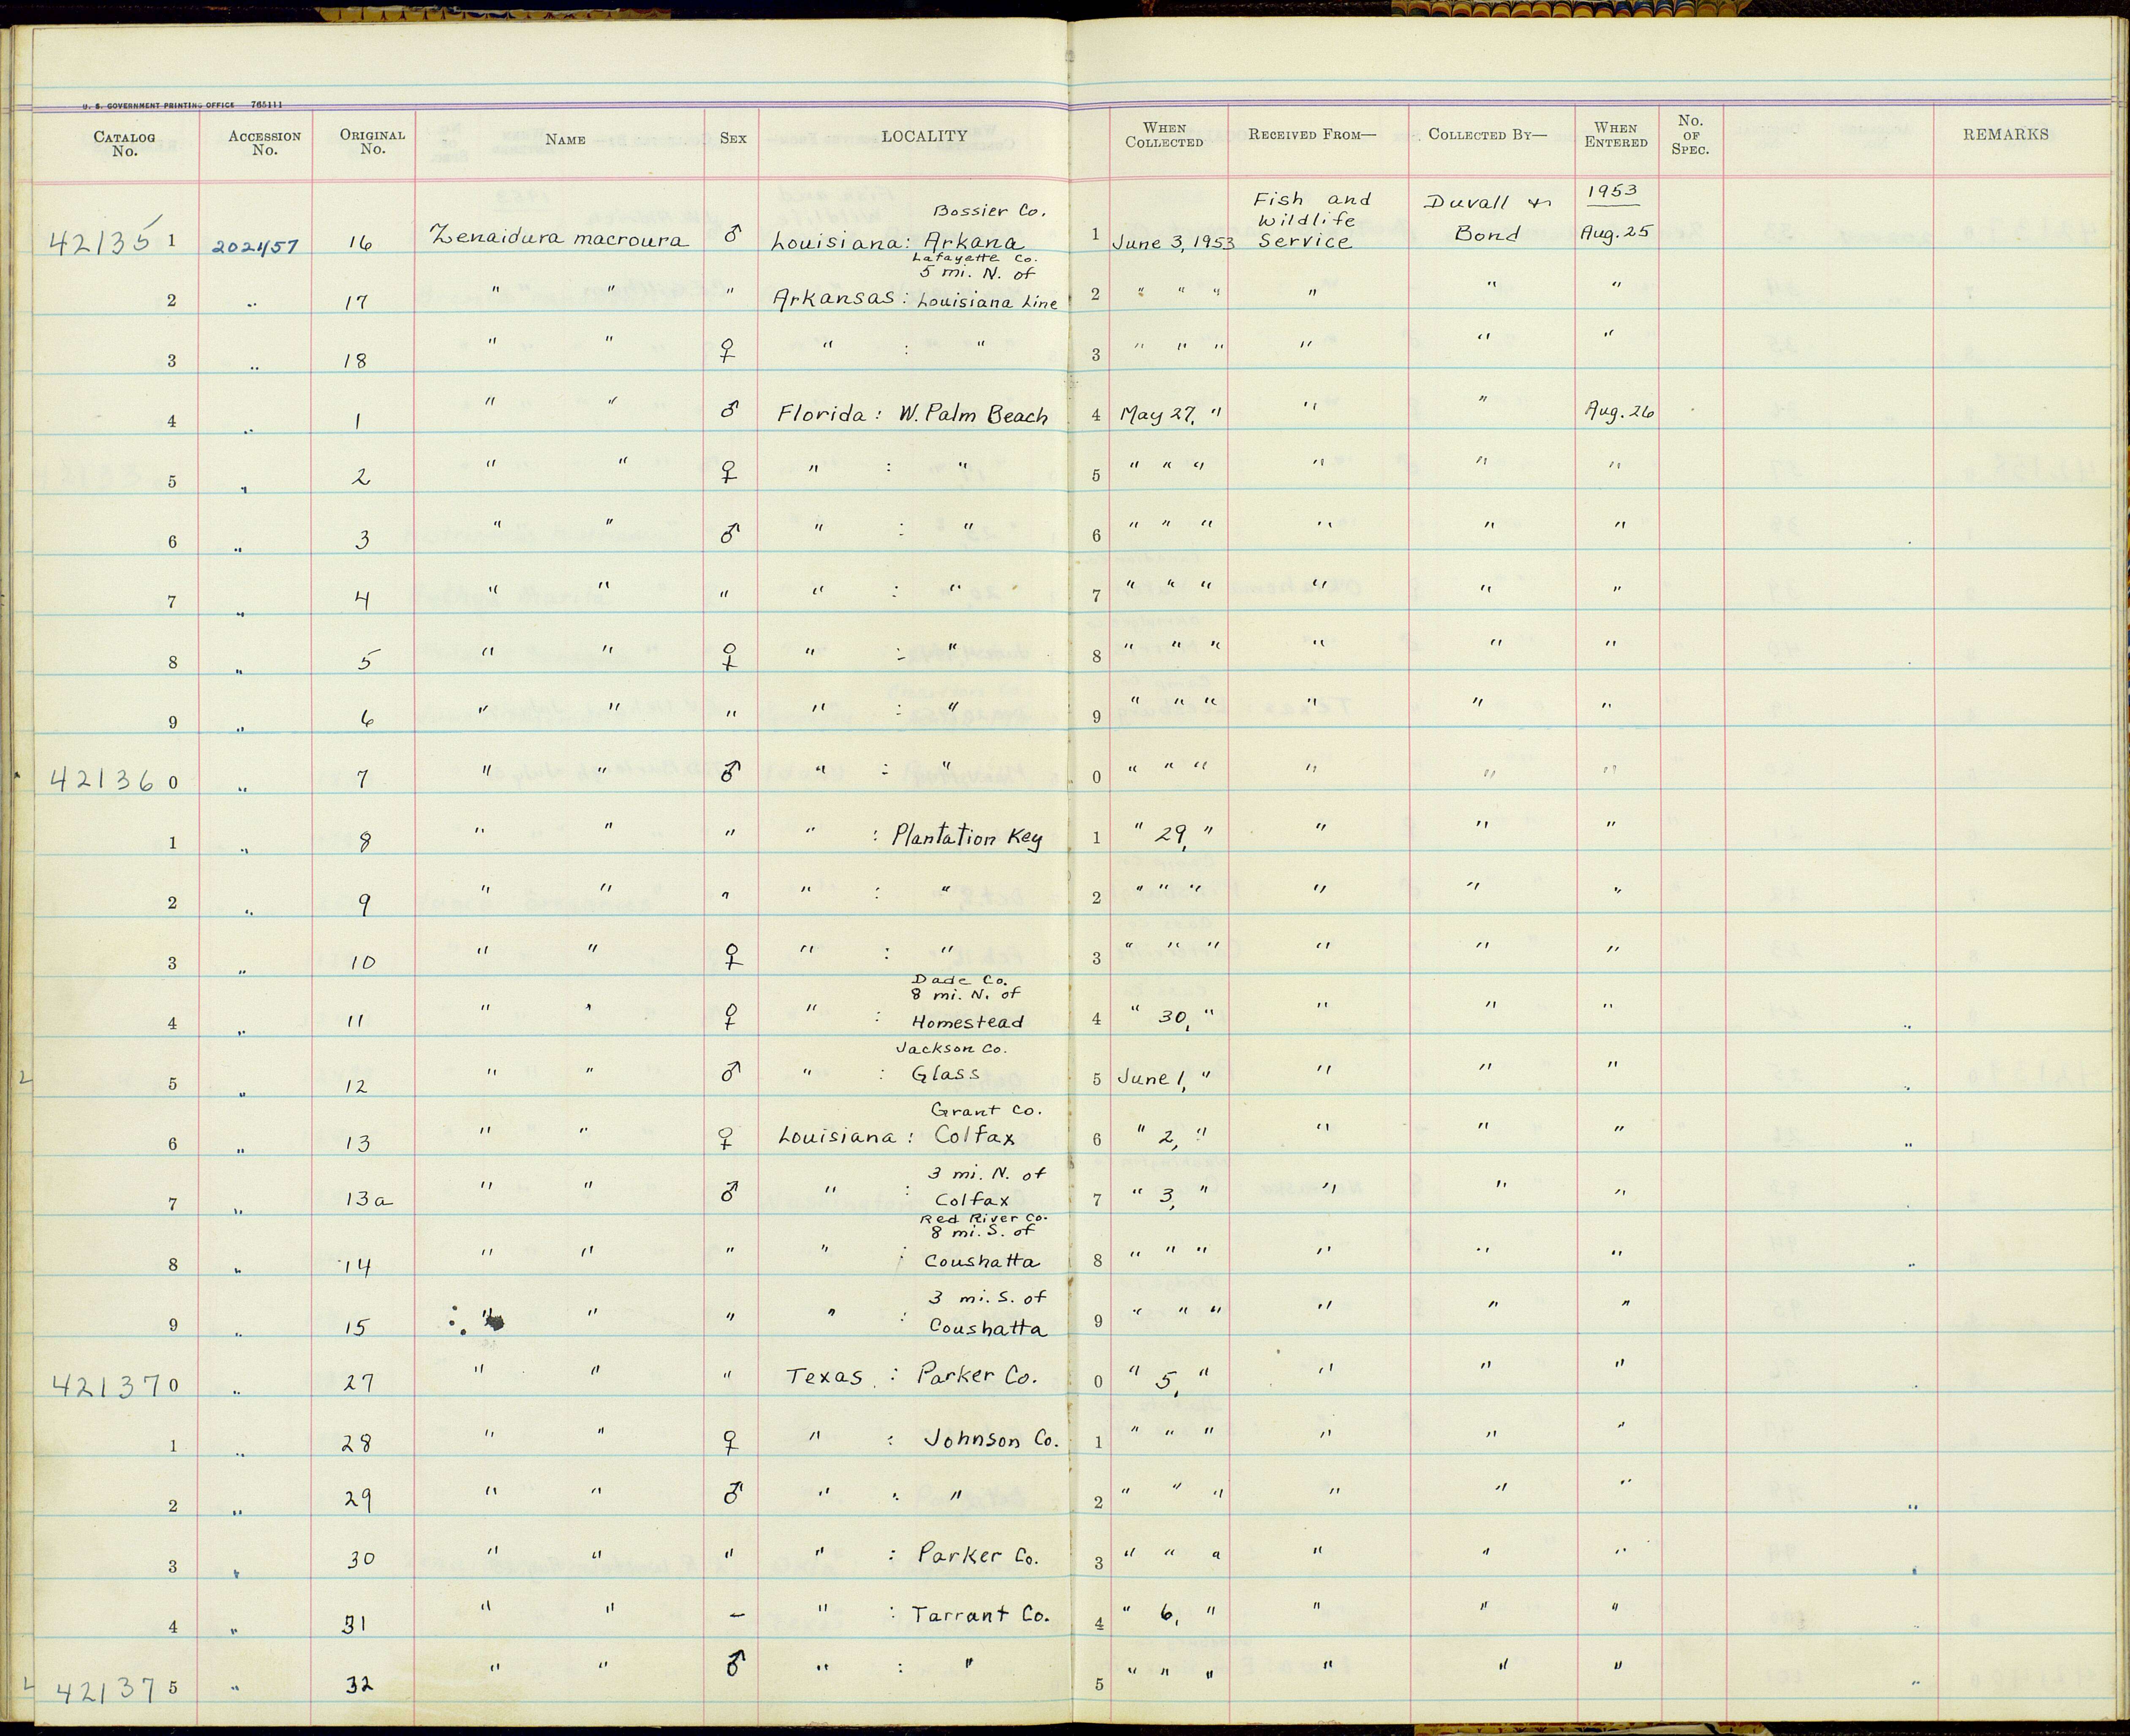 U. S. GOVERNMENT PRINTING OFFICE 765111
CATALOG No. ACCESSION No. ORIGINAL No. NAME SEX LOCALITY WHEN COLLECTED RECEIVED FROM— COLLECTED BY— WHEN ENTERED No. OF SPEC. REMARKS
1953
Bossier Co. Fish and Wildlife Duvall &
421351 202457 16 Zenaidura macroura ♂ Louisiana: Arkana 1 June 3, 1953 Service Bond Aug. 25
Lafayette Co.
5 mi. N. of
2 " 17 " " " Arkansas: Louisiana Line 2 " " " " " "
3 " 18 " " ♀ " : " 3 " " " " " "
4 " 1 " " ♂ Florida: W. Palm Beach 4 May 27, " " " Aug. 26
5 " 2 " " ♀ " : " 5 " " " " " "
6 " 3 " " ♂ " : " 6 " " " " " "
7 " 4 " " " " : " 7 " " " " " "
8 " 5 " " ♀ " : " 8 " " " " " "
9 " 6 " " " " : " 9 " " " " " "
421360 " 7 " " ♂ " : " 0 " " " " " "
1 " 8 " " " " : Plantation Key 1 " 29, " " " "
2 " 9 " " " " : " 2 " " " " " "
3 " 10 " " ♀ " : " 3 " " " " " "
Dade Co.
8 mi. N. of
4 " 11 " " ♀ " : Homestead 4 " 30, " " " "
Jackson Co.
5 " 12 " " ♂ " : Glass 5 June 1, " " " "
Grant Co.
6 " 13 " " ♀ Louisiana: Colfax 6 " 2, " " " "
3 mi. N. of
7 " 13a " " ♂ " : Colfax 7 " 3, " " " "
Red River Co.
8 mi. S. of
8 " 14 " " " " : Coushatta 8 " " " " " "
3 mi. S. of
9 " 15 " " " " : Coushatta 9 " " " " " "
421370 " 27 " " " Texas: Parker Co. 0 " 5, " " " "
1 " 28 " " ♀ " : Johnson Co. 1 " " " " " "
2 " 29 " " ♂ " : " 2 " " " " " "
3 " 30 " " " " : Parker Co. 3 " " " " " "
4 " 31 " " – " : Tarrant Co. 4 " 6, " " " "
421375 " 32 " " ♂ " : " 5 " " " " " "